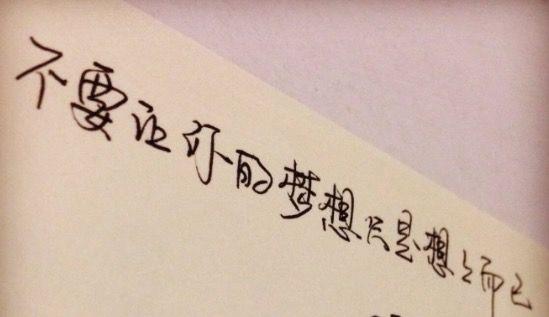 不要让你的梦想只是想想而已